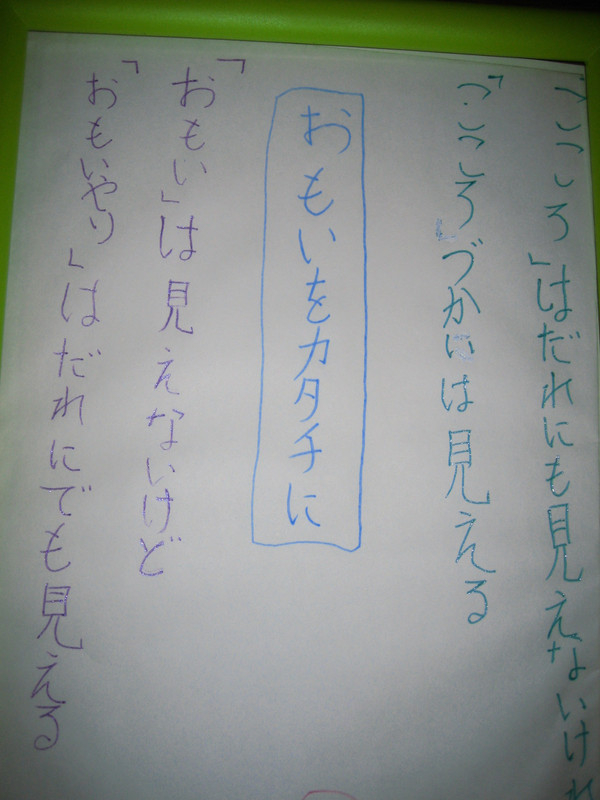 「こころ」はだれにも見えないけれ
「こころ」づかいは見える
おもいをカタチに
「おもい」は見えないけど
「おもいやり」はだれにでも見える